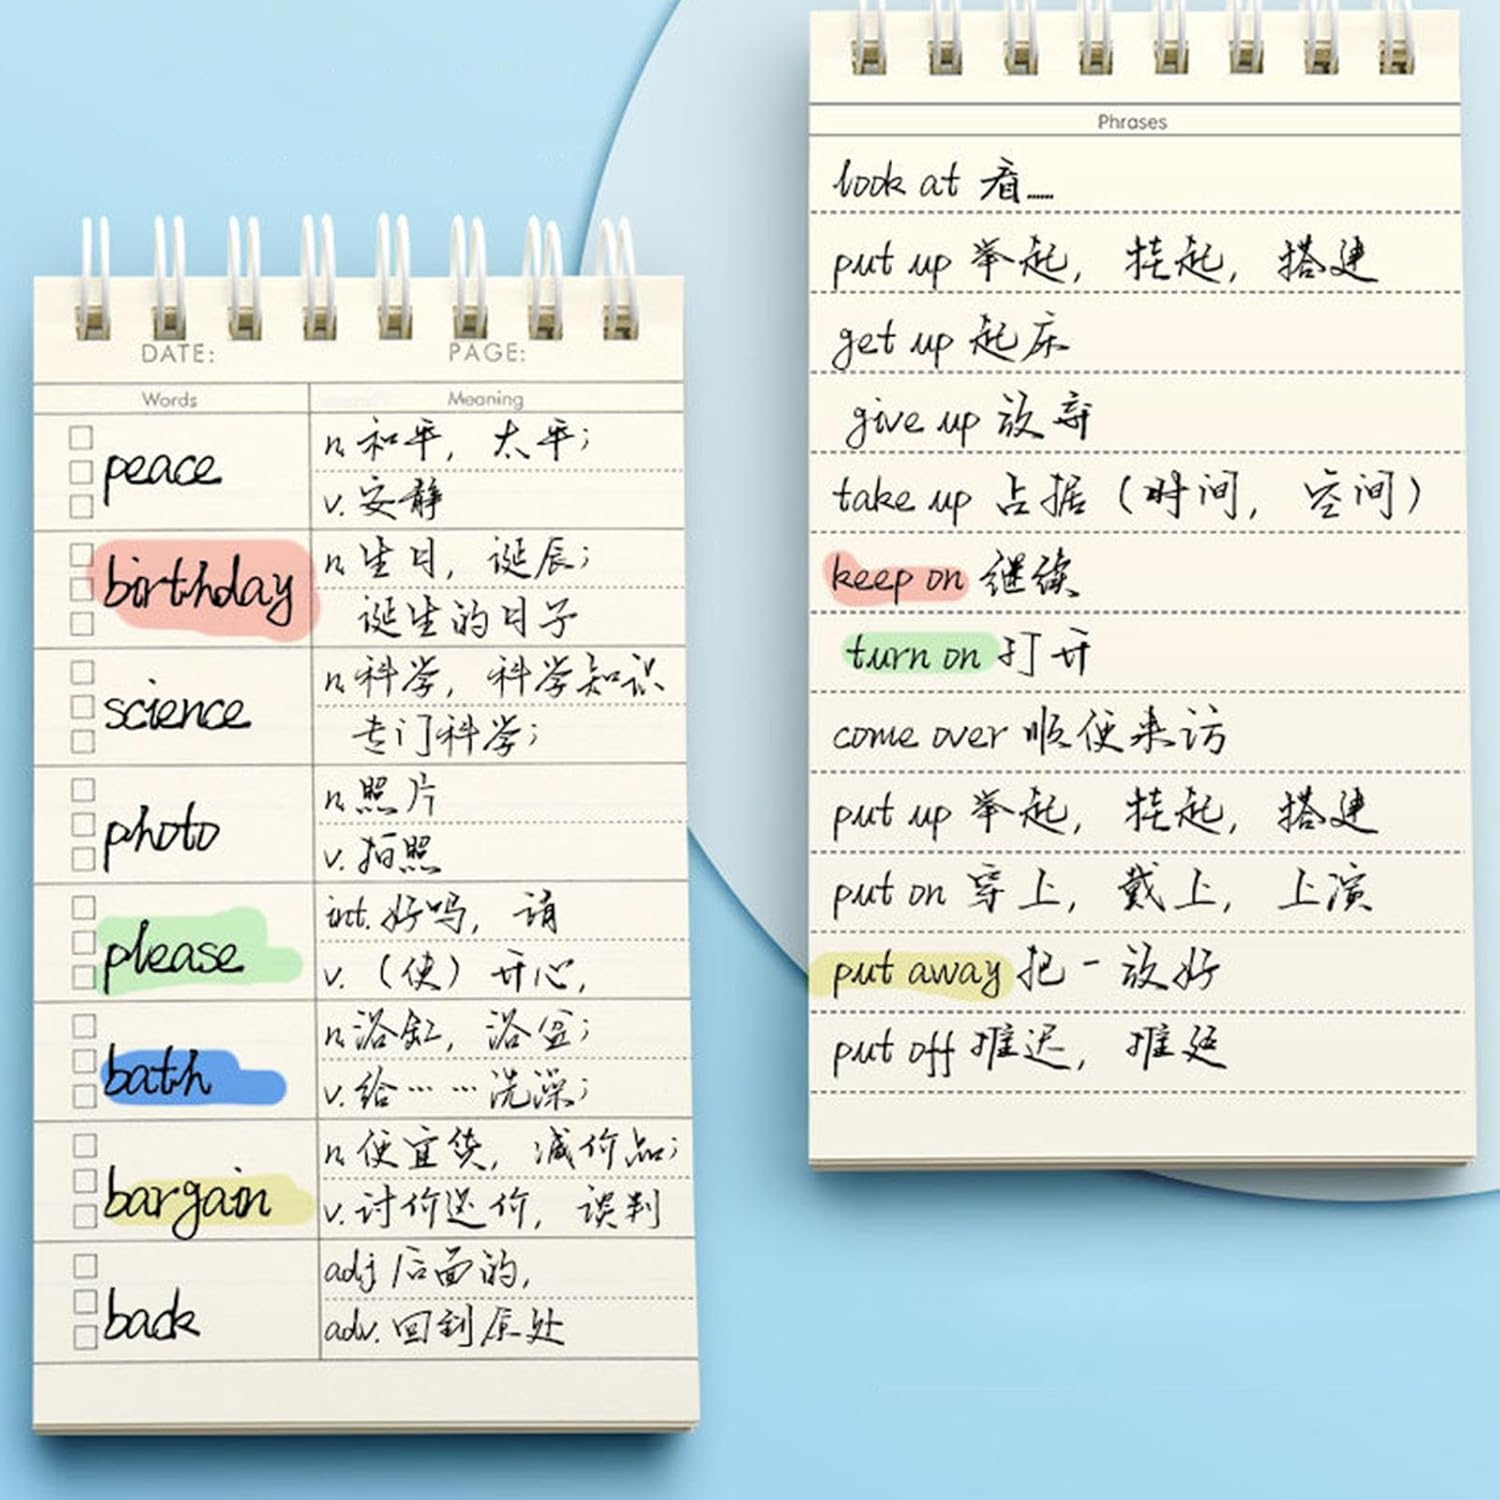 DATE: PAGE:
Words Meaning
peace n. 和平, 太平;
v. 安静
birthday n. 生日, 诞辰;
诞生的日子
science n. 科学, 科学知识
专门科学;
photo n. 照片
v. 拍照
please int. 好吗, 请
v. (使) 开心,
bath n. 浴缸, 浴盆;
v. 给……洗澡;
bargain n. 便宜货, 减价品;
v. 讨价还价, 谈判
back adj 后面的,
adv. 回到原处
Phrases
look at 看……
put up 举起, 挂起, 搭建
get up 起床
give up 放弃
take up 占据 (时间, 空间)
keep on 继续
turn on 打开
come over 顺便来访
put up 举起, 挂起, 搭建
put on 穿上, 戴上, 上演
put away 把-放好
put off 推迟, 推延